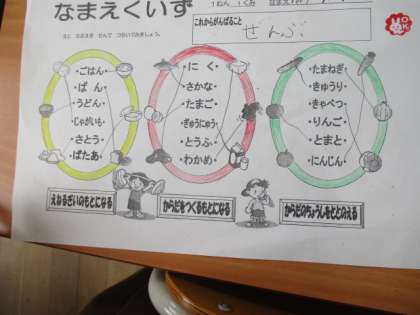 なまえくいず
1ねん 1くみ
えと なまえを せんで つないでみましょう。
これからがんばること
ぜんぶ
OK
・ごはん・
・ぱん・
・うどん・
・じゃがいも・
・さとう・
・ばたあ・
・にく・
・さかな・
・たまご・
・ぎゅうにゅう・
・とうふ・
・わかめ・
・たまねぎ・
・きゅうり・
・きゃべつ・
・りんご・
・とまと・
・にんじん・
えねるぎいのもとになる
からだをつくるもとになる
からだのちょうしをととのえる